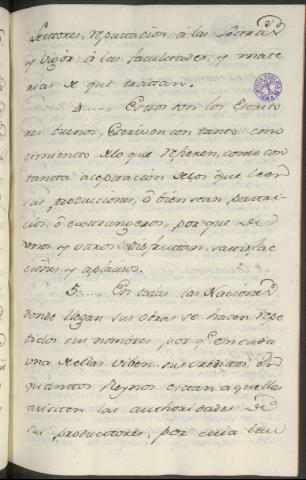 Lectores, reputacion à las Letras
y vigor à las facultades, y mate
rias de que tratan.
4.... Estos son los Escrito
res buenos, Escriven con tanto cono
cimiento de lo que refieren, como con
tanta aceptacion de los que leen
sus producciones, ò bien sean patri
cios, ò extrangeros, por que de
unos, y otros disfrutan, satisfac
ciones, y aplausos.
5.... En todas las Naciones
donde llegan sus obras se hacen repe
tidos sus nombres, por qe. en cada
una de ellas viben, sus creditos, En
quantos Reynos estan aquellas
asisten las authoridades de
sus productores, por cuia